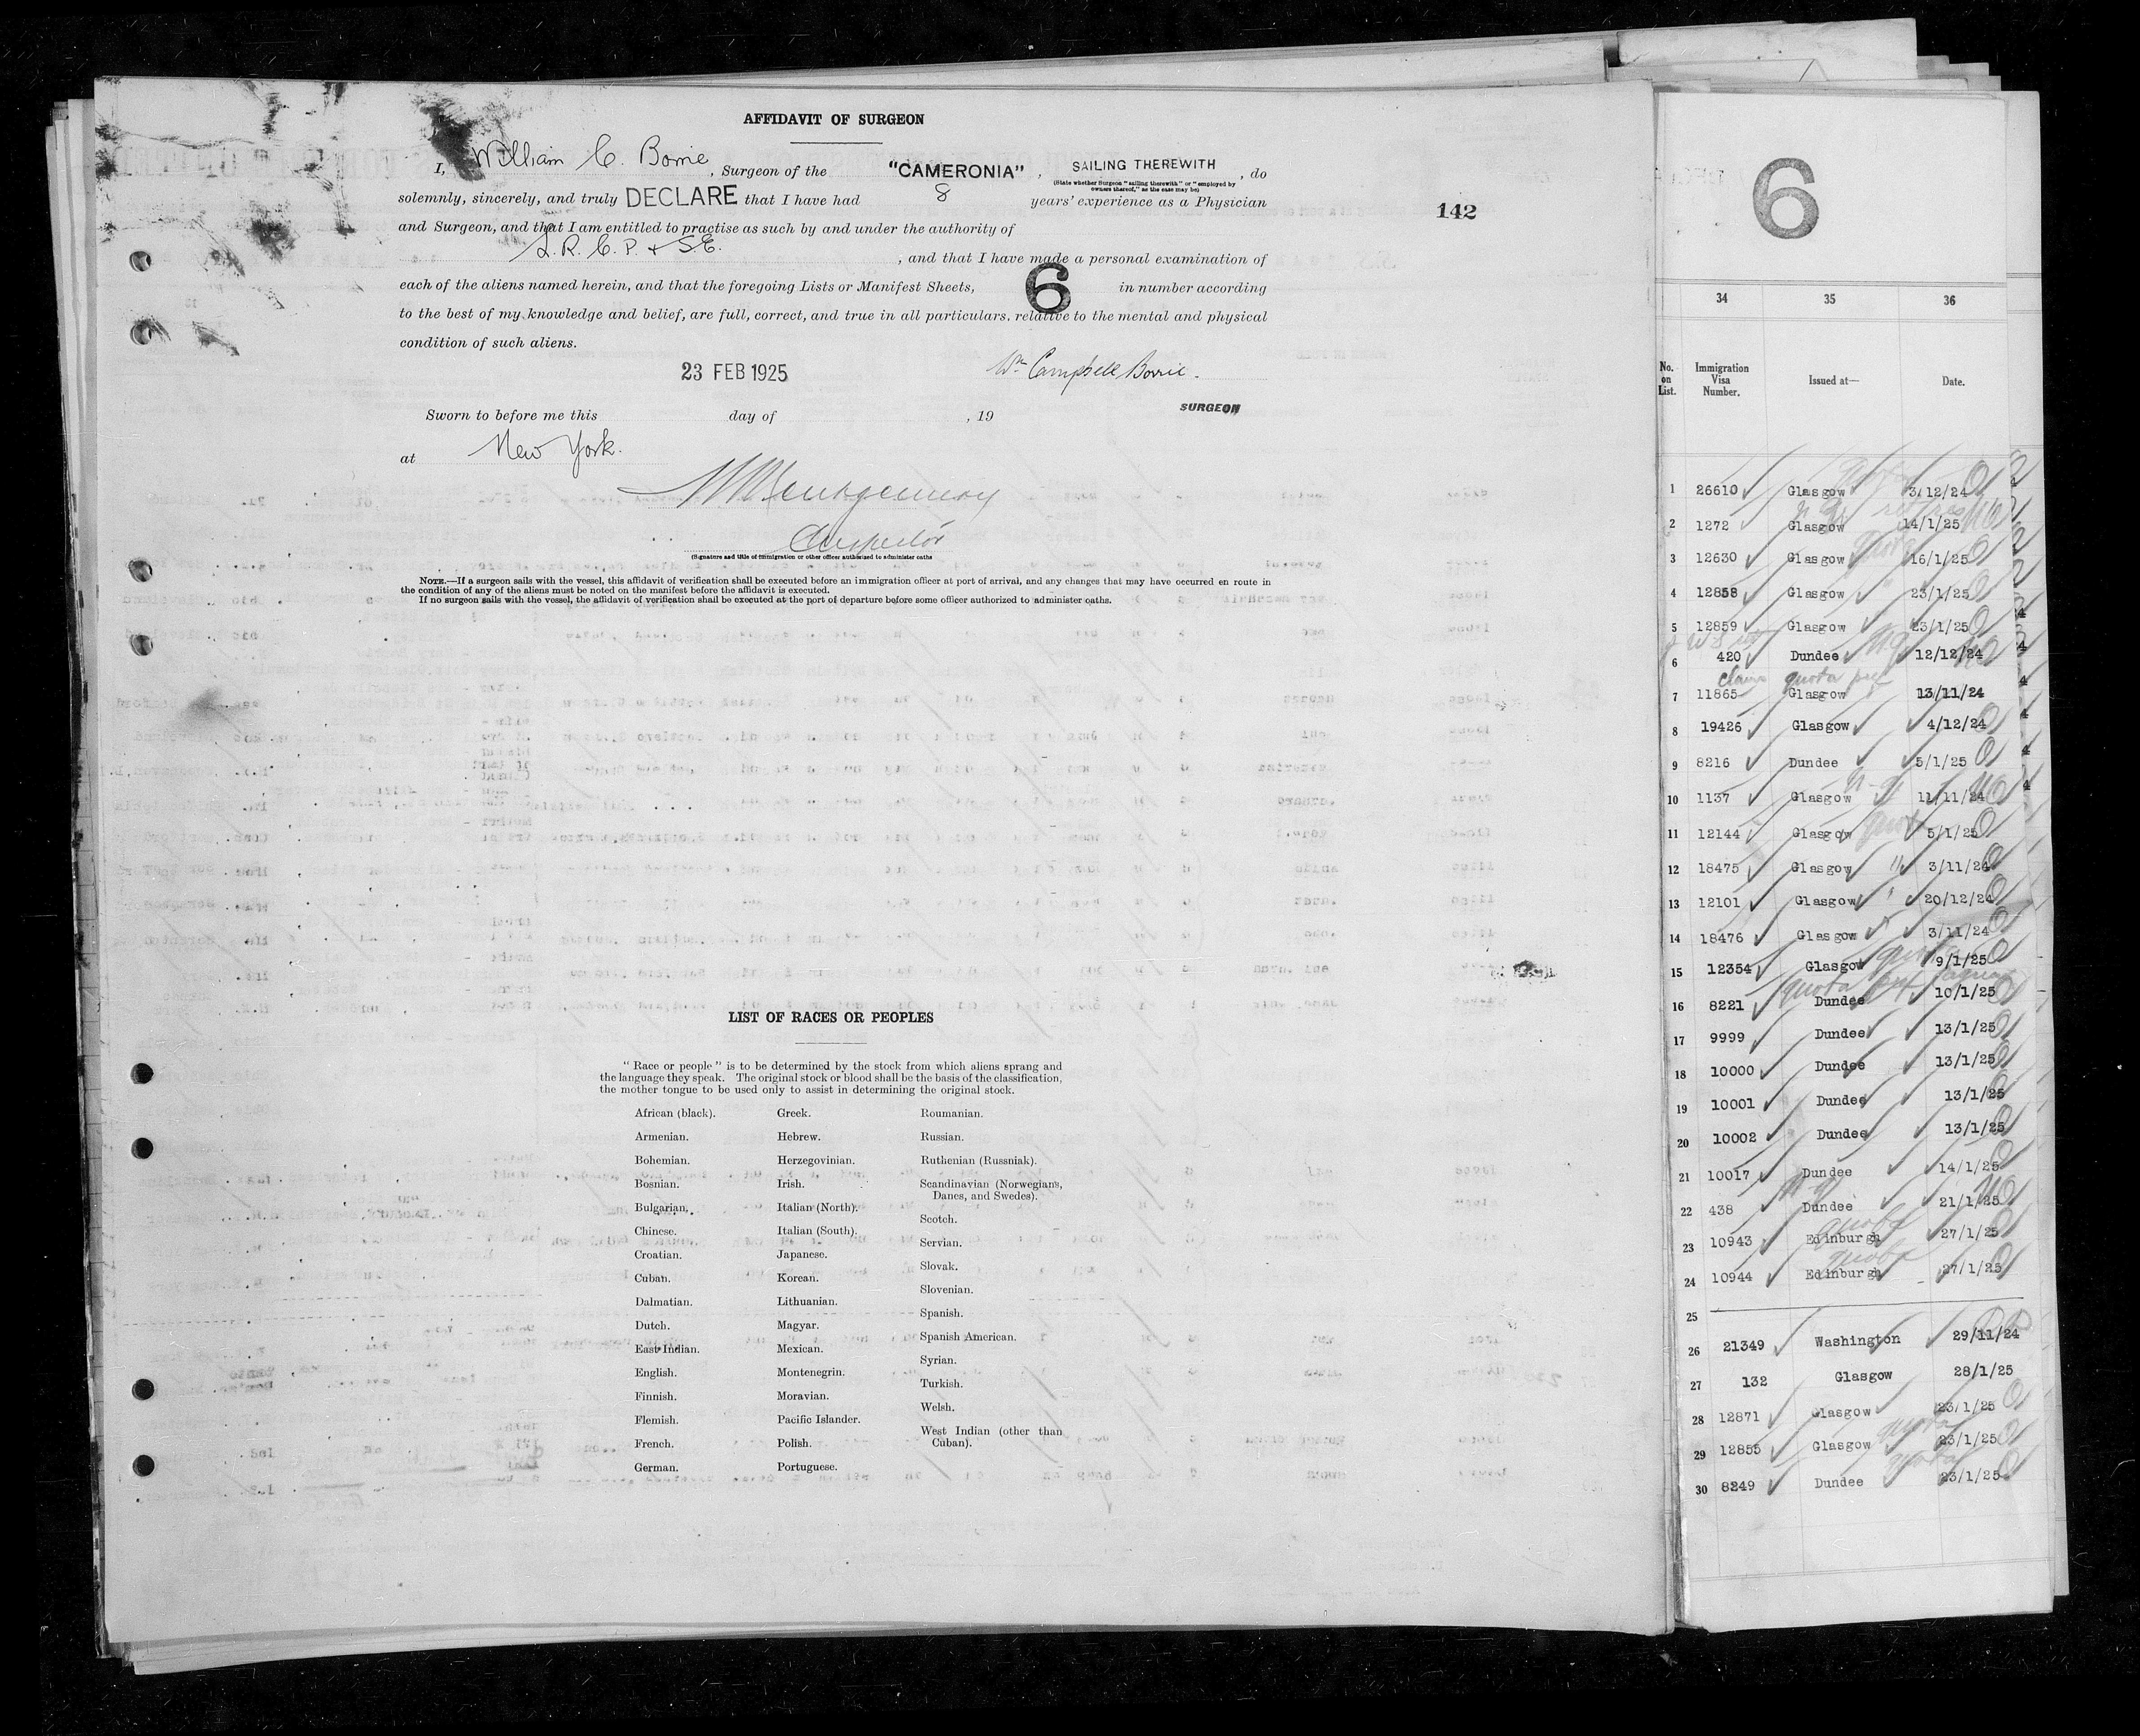 AFFIDAVIT OF SURGEON
I, William C. Borrie, Surgeon of the "CAMERONIA", SAILING THEREWITH, do
(State whether Surgeon "sailing therewith" or "employed by
owners thereof," as the case may be)
solemnly, sincerely, and truly DECLARE that I have had 8 years' experience as a Physician
142
and Surgeon, and that I am entitled to practise as such by and under the authority of
L.R.C.P. & S.E. , and that I have made a personal examination of
each of the aliens named herein, and that the foregoing Lists or Manifest Sheets, 6 in number according
to the best of my knowledge and belief, are full, correct, and true in all particulars, relative to the mental and physical
condition of such aliens.
23 FEB 1925
Wm Campbell Borrie.
Sworn to before me this day of , 19
SURGEON
at New York.
Montgomery
Inspector
(Signature and title of immigration or other officer authorized to administer oaths
NOTE.—If a surgeon sails with the vessel, this affidavit of verification shall be executed before an immigration officer at port of arrival, and any changes that may have occurred en route in
the condition of any of the aliens must be noted on the manifest before the affidavit is executed.
If no surgeon sails with the vessel, the affidavit of verification shall be executed at the port of departure before some officer authorized to administer oaths.
LIST OF RACES OR PEOPLES
"Race or people" is to be determined by the stock from which aliens sprang and
the language they speak. The original stock or blood shall be the basis of the classification,
the mother tongue to be used only to assist in determining the original stock.
African (black).
Armenian.
Bohemian.
Bosnian.
Bulgarian.
Chinese.
Croatian.
Cuban.
Dalmatian.
Dutch.
East Indian.
English.
Finnish.
Flemish.
French.
German.
Greek.
Hebrew.
Herzegovinian.
Irish.
Italian (North).
Italian (South).
Japanese.
Korean.
Lithuanian.
Magyar.
Mexican.
Montenegrin.
Moravian.
Pacific Islander.
Polish.
Portuguese.
Roumanian.
Russian.
Ruthenian (Russniak).
Scandinavian (Norwegians,
Danes, and Swedes).
Scotch.
Servian.
Slovak.
Slovenian.
Spanish.
Spanish American.
Syrian.
Turkish.
Welsh.
West Indian (other than
Cuban).
6
34 35 36
No. on List. Immigration Visa Number. Issued at— Date.
1 26610 Glasgow 3/12/24
2 1272 Glasgow 14/1/25
3 12630 Glasgow 16/1/25
4 12858 Glasgow 23/1/25
5 12859 Glasgow 23/1/25
6 420 Dundee 12/12/24
claims quota pref
7 11865 Glasgow 13/11/24
8 19426 Glasgow 4/12/24
9 8216 Dundee 5/1/25
10 1137 Glasgow 11/11/24
11 12144 Glasgow 5/1/25
12 18475 Glasgow 3/11/24
13 12101 Glasgow 20/12/24
14 18476 Glasgow 3/11/24
15 12354 Glasgow 9/1/25
quota pref
16 8221 Dundee 10/1/25
17 9999 Dundee 13/1/25
18 10000 Dundee 13/1/25
19 10001 Dundee 13/1/25
20 10002 Dundee 13/1/25
21 10017 Dundee 14/1/25
22 438 Dundee 21/1/25
quota
23 10943 Edinburgh 27/1/25
quota
24 10944 Edinburgh 27/1/25
25
26 21349 Washington 29/11/24
27 132 Glasgow 28/1/25
28 12871 Glasgow 23/1/25
quota
29 12855 Glasgow 23/1/25
quota
30 8249 Dundee 23/1/25